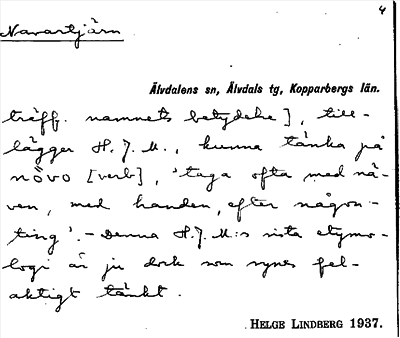 4
Navartjärn
Älvdalens sn, Älvdals tg, Kopparbergs län.
träff. namnets betydelse], till-
lägger H. J. M., kunna tänka på
nåvo [verb], 'taga ofta med nä-
ven, med handen, efter någon-
ting'. – Denna H. J. M:s sista etymo-
logi är ju dock som synes fel-
aktigt tänkt.
HELGE LINDBERG 1937.